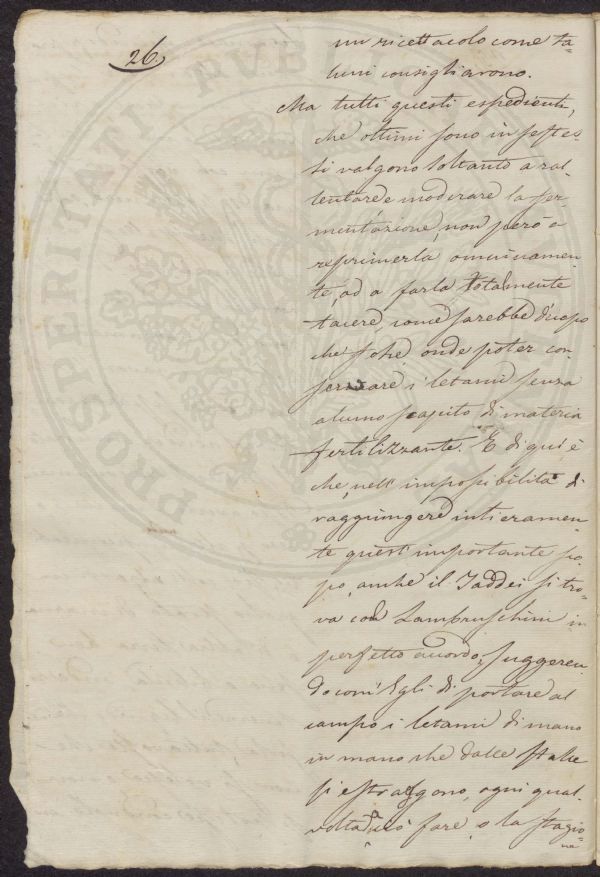 26.
un ricettacolo come ta-
luni consigliarono.
Ma tutti questi espedienti,
che ottimi sono in se stes-
si valgono soltanto a ral-
lentare e moderare la fer-
mentazione, non però a
reprimerla onninamen-
te, od a farla totalmente
tacere, come sarebbe d'uopo
che fosse onde poter con-
servare i letami senza
alcuno scapito di materia
fertilizzante. E di qui è
che, nell'impossibilità di
raggiungere interamen-
te quest'importante sco-
po, anche il Taddei si tro-
va con Lambruschini in
perfetto accordo, suggeren-
do com'Egli di portare al
campo i letami di mano
in mano che dalle stalle
si estraggono, ogni qual-
volta ciò fare o la stagio-
ne
PROSPERITATI PVBLICAE